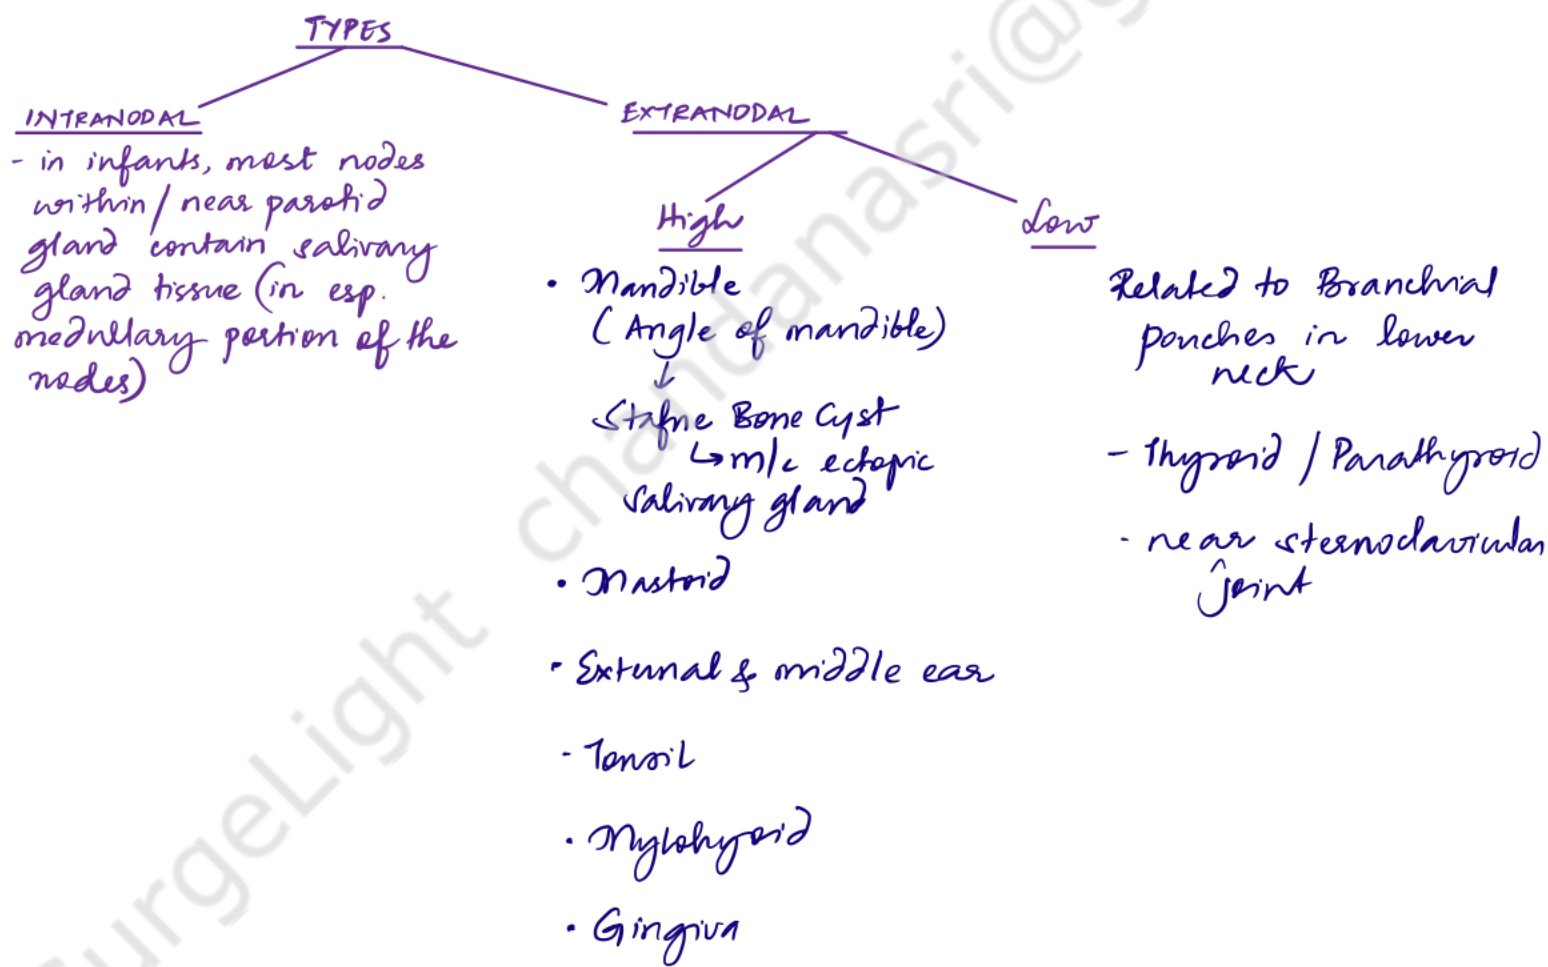 TYPES
INTRANODAL
- in infants, most nodes
within / near parotid
gland contain salivary
gland tissue (in esp.
medullary portion of the
nodes)
EXTRANODAL
High
• Mandible
(Angle of mandible)
↓
Stafne Bone Cyst
↳ m/c ectopic
salivary gland
• Mastoid
• External & middle ear
- Tonsil
• Mylohyoid
• Gingiva
Low
Related to Branchial
pouches in lower
neck
- Thyroid / Parathyroid
- near sternoclavicular
joint
SurgeLight chandanasri@g